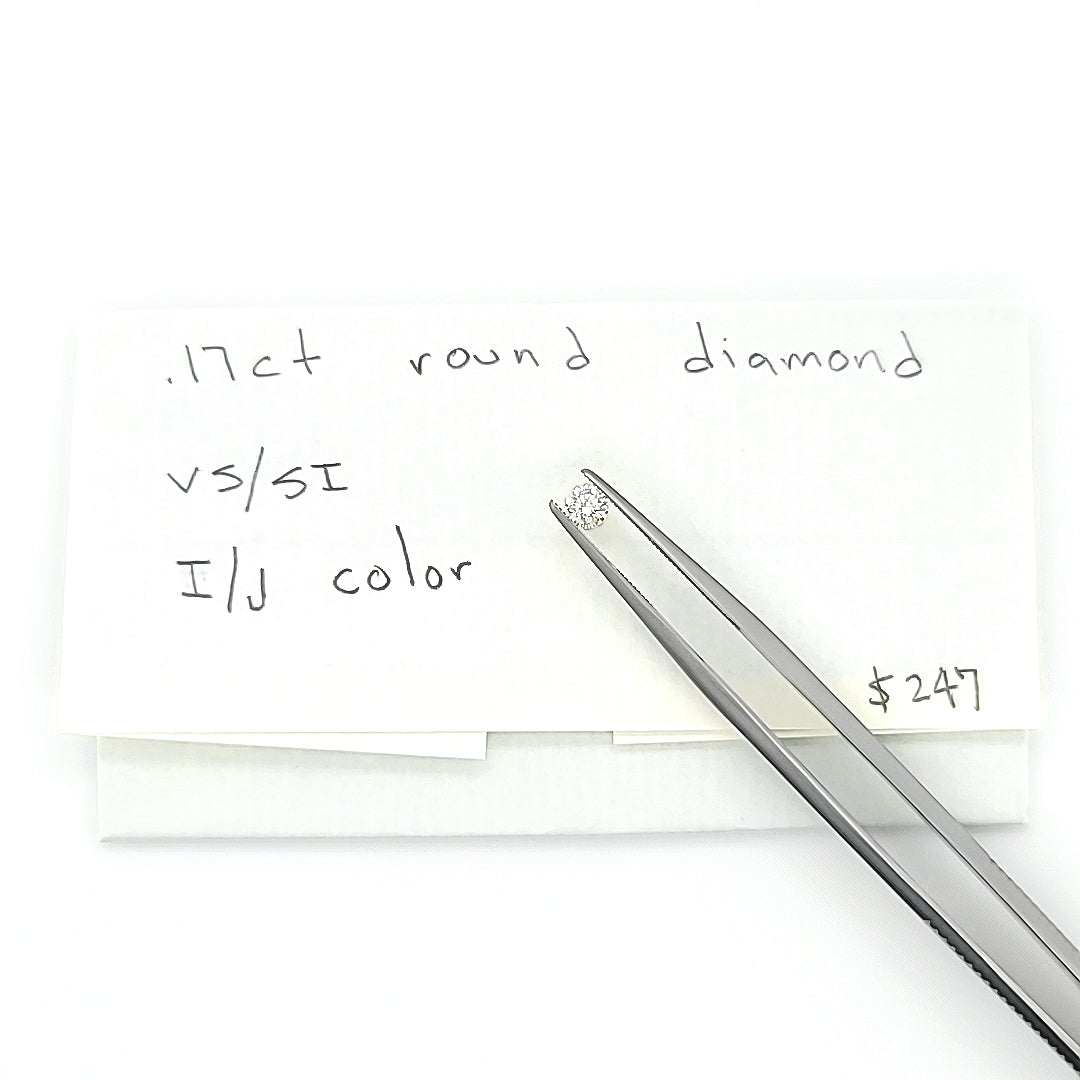 .17ct round diamond
VS/SI
I/J color
$247